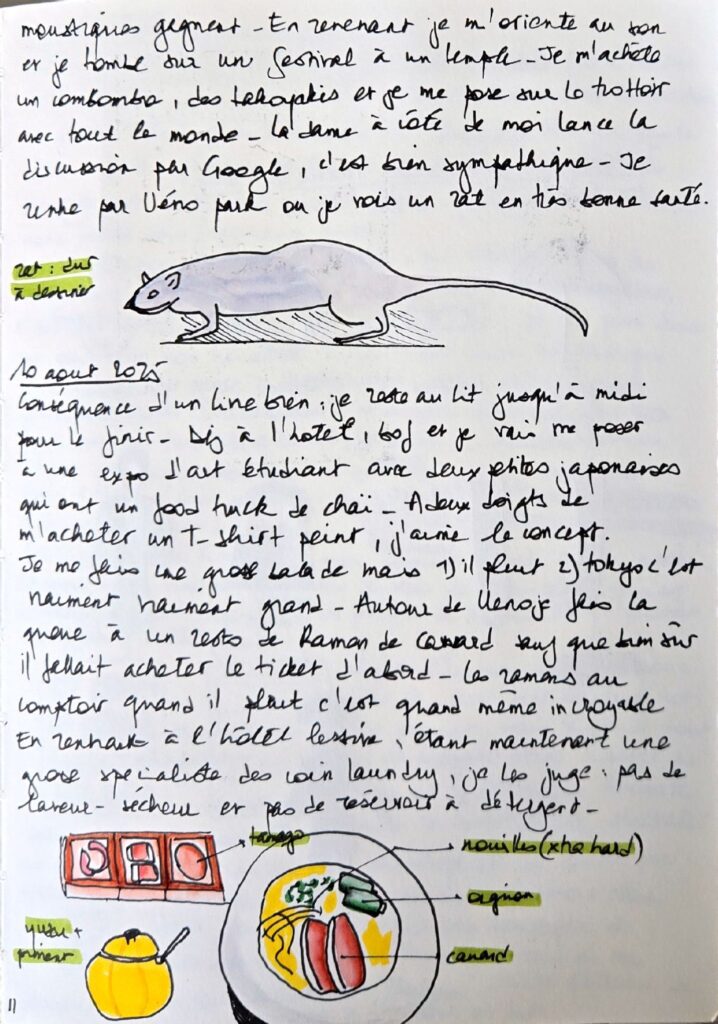 moustiques gagnent - En revenant je m'oriente au son
et je tombe sur un festival à un temple - Je m'achète
un concombre, des takoyakis et je me pose sur le trottoir
avec tout le monde - la dame à côté de moi lance la
discussion par Google, c'est bien sympathique - Je
rentre par Uéno park ou je vois un rat en très bonne santé.
rat : dur
à dessiner
10 aout 2025
Conséquence d'un livre bien : je reste au lit jusqu'à midi
pour le finir - Dej à l'hotel, bof et je vais me poser
à une expo d'art étudiant avec deux petites japonaises
qui ont un food truck de chaï - A deux doigts de
m'acheter un T-shirt peint, j'aime le concept.
Je me fais une grosse balade mais 1) il pleut 2) tokyo c'est
vraiment vraiment grand - Autour de Ueno je fais la
queue à un resto de Ramen de canard sauf que bien sûr
il fallait acheter le ticket d'abord - les ramens au
comptoir quand il pleut c'est quand même incroyable
En rentrant à l'hôtel lessive, étant maintenant une
grosse specialiste des coin laundry, je les juge : pas de
laveur - sécheur et pas de réservoir à détergent -
tamago
nouilles (xtra hard)
oignon
yuzu +
piment
canard
11